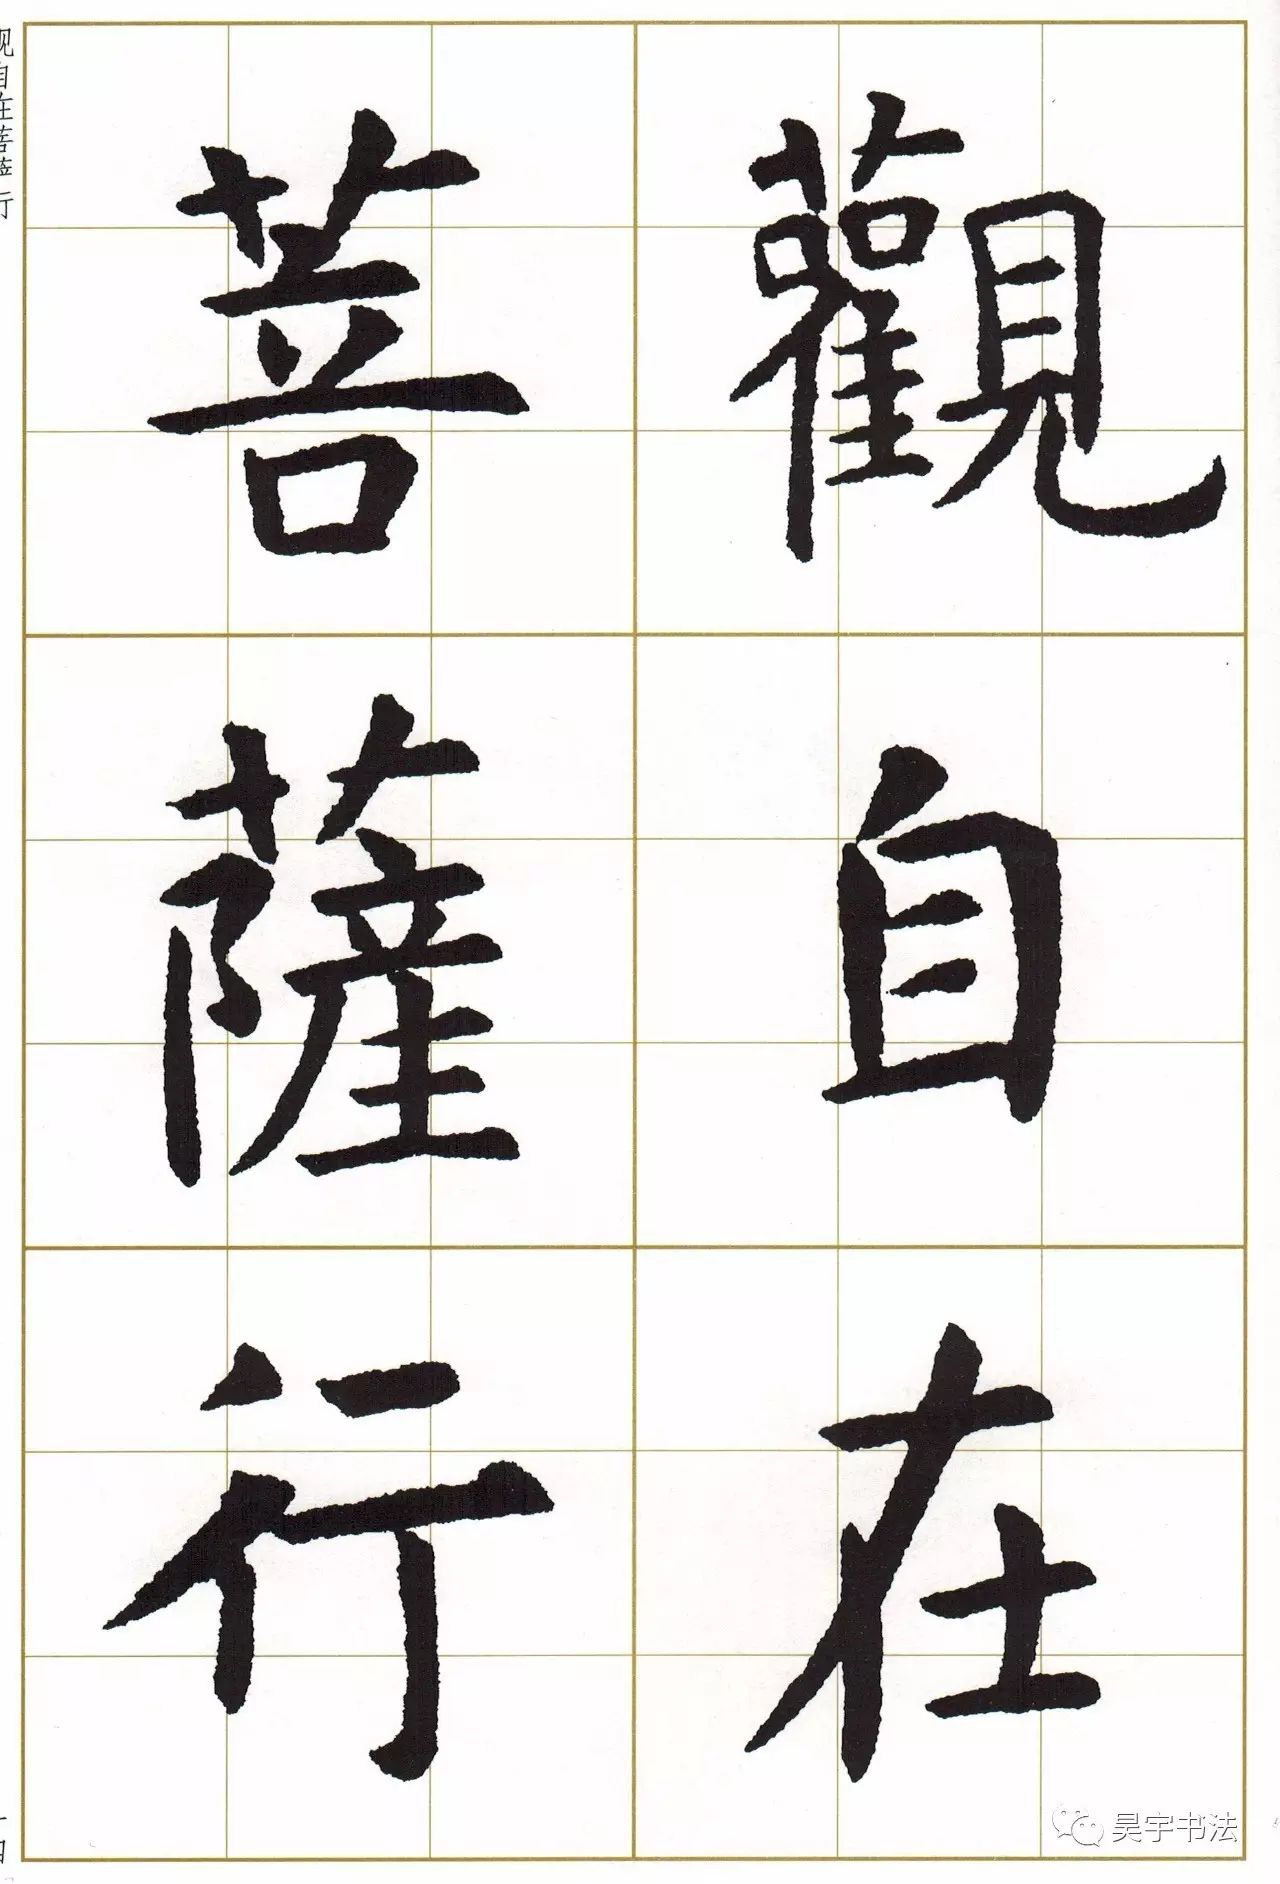 觀自在
菩薩行
观自在菩萨行
昊宇书法